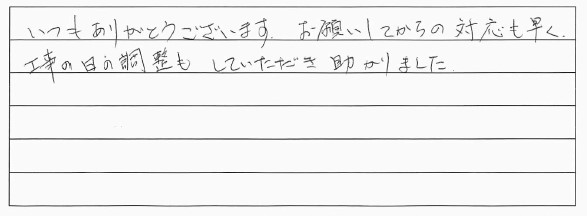 いつもありがとうございます。お願いしてからの対応も早く、
工事の日の調整もしていただき助かりました。